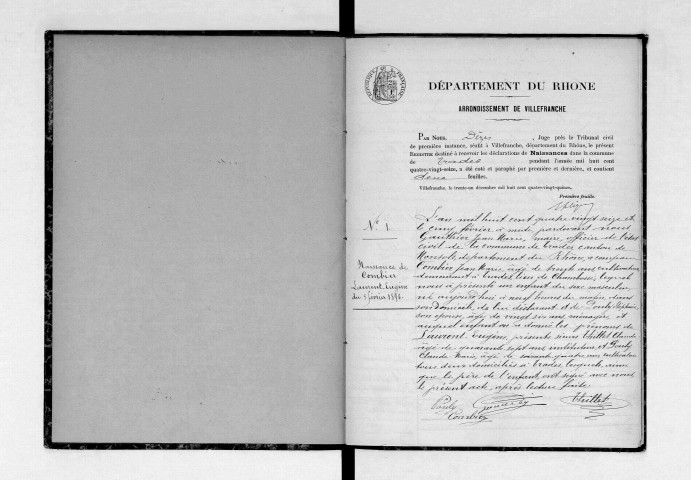 DÉPARTEMENT DU RHONE
ARRONDISSEMENT DE VILLEFRANCHE
PAR NOUS, , Juge près le Tribunal civil
de première instance, séant à Villefranche, département du Rhône, le présent
REGISTRE destiné à recevoir les déclarations de Naissances dans la commune
de Trades pendant l'année mil huit cent
quatre-vingt-seize, a été coté et paraphé par première et dernière, et contient
deux feuilles.
Villefranche, le trente-un décembre mil huit cent quatre-vingt-quinze.
Première feuille.
N° 1
Naissance de
Combier
Laurent Eugène
du 5 février 1896.
L'an mil huit cent quatre vingt seize et
le cinq février à midi pardevant nous
Gauthier Jean Marie, maire, officier de l'état
civil de la commune de Trades canton de
Monsols, département du Rhône, a comparu
Combier Jean Marie, âgé de trente ans cultivateur
demeurant à Trades, lieu de lequel
nous a présenté un enfant du sexe masculin,
né aujourd'hui à neuf heures du matin, dans
son domicile, de lui déclarant et de
son épouse, âgée de vingt six ans ménagère, et
auquel enfant on a donné les prénoms de
Laurent Eugène, présents sieurs Thillet Claude
âgé de quarante sept ans instituteur, et
Claude Marie, âgé de soixante quatre ans cultivateur
tous deux domiciliés à Trades lesquels, ainsi
que le père de l'enfant, ont signé avec nous
le présent acte, après lecture faite.
Combier Thillet